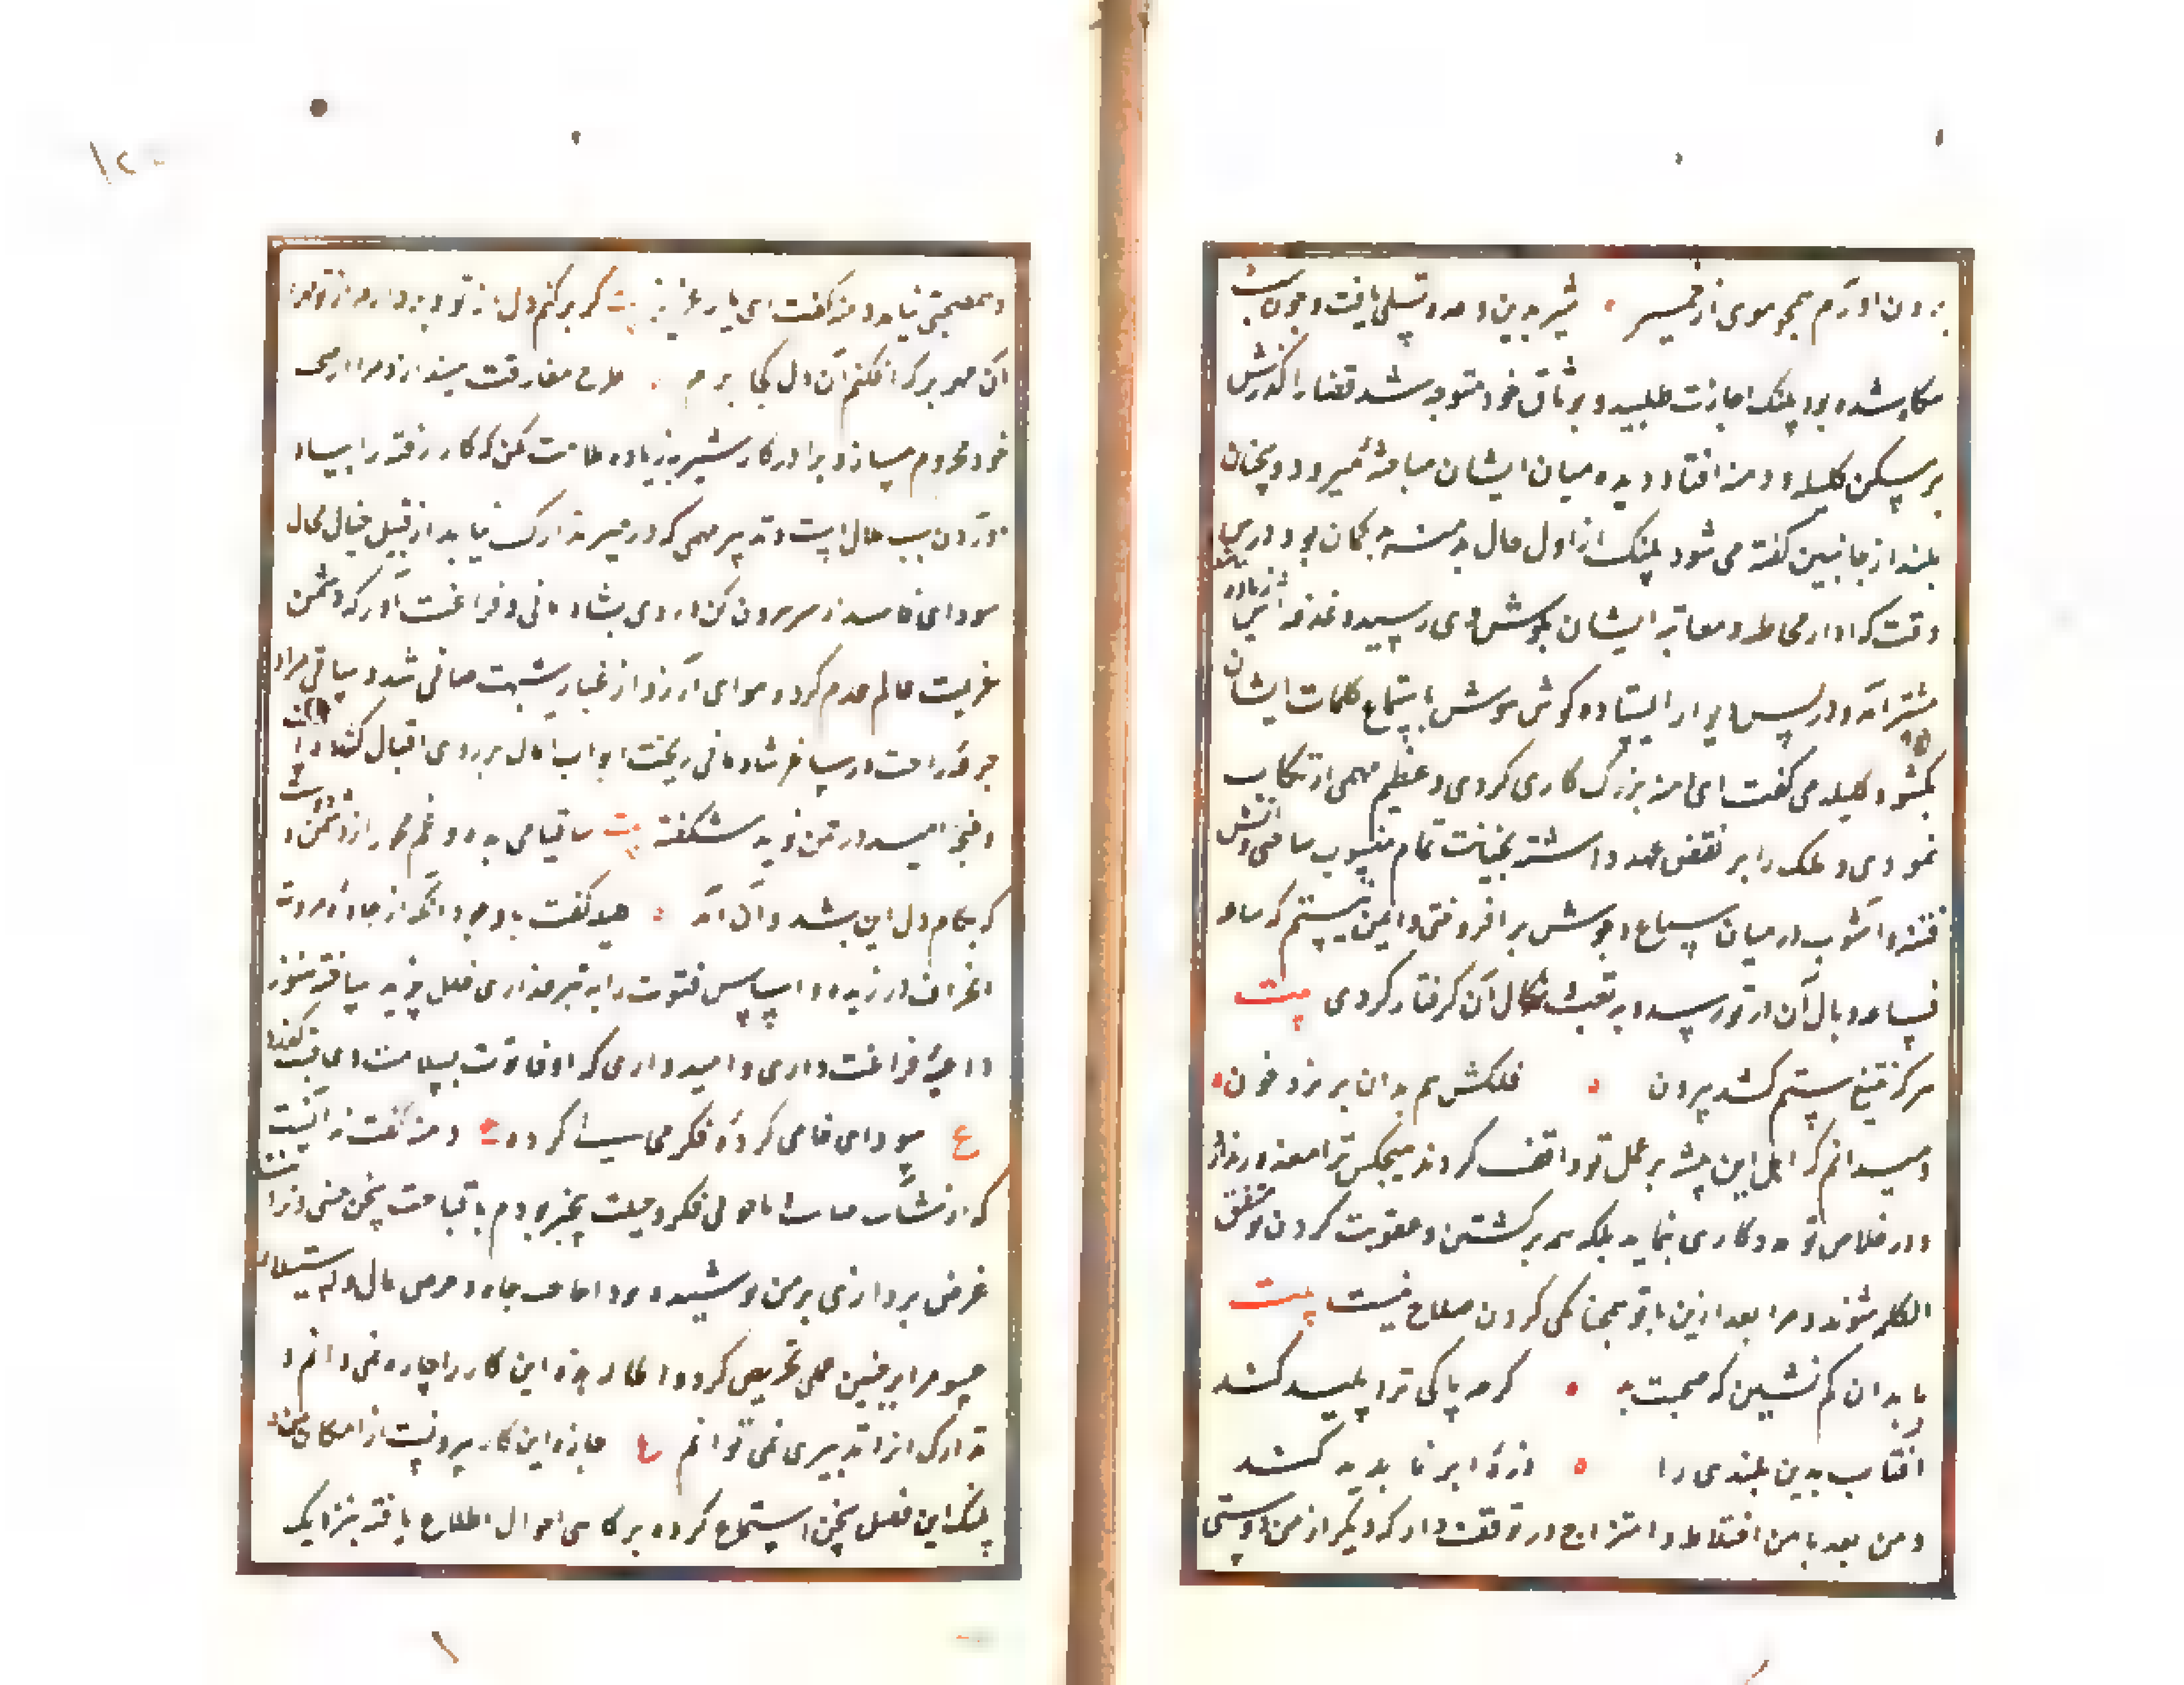 برون آورم همچو موی از خمیر شیر بدین وعده تسلی یافت و چون شب
بیکاه شده بود پلنک اجازت طلبید و بوثاق خود متوجه شد قضا را گذرش
بر مسکن کلیله و دمنه افتاد دید میان ایشان مباحثه میرود و سخنان
بلند از جانبین گفته می شود پلنک از اول حال بدمنه بدکمان بود درین
وقت که آواز مخاطره و معاتبه ایشان بکوش وی رسید دغدغه اش زیاده شد
پیشتر آمد و در پس دیوار ایستاده کوش هوش باستماع کلمات ایشان
بکشود کلیله می گفت ای دمنه بزرک کاری کردی و عظیم مهمی ارتکاب
نمودی و ملک را بر نقض عهد داشته بخیانت تمام منسوب ساختی و آتش
فتنه و آشوب در میان سباع و وحوش بر افروختی و ایمن نیستم که ساعة
فساعة وبال آن در تو رسد و بر تبعت نکال آن گرفتار کردی بیت
هرکه تیغ ستم کشد بیرون فلکش هم بدان بریزد خون
و میدانم که اهل این بیشه بر عمل تو واقف کردند هیچکس ترا معذور ندارد
و در خلاص تو مدد کاری ننماید بلکه همه بر کشتن و عقوبت کردن تو متفق
الکلمه شوند و مرا بعد ازین با تو همخانکی کردن صلاح نیست بیت
با بدان کم نشین که صحبت بد کرچه پاکی ترا پلید کند
آفتاب بدین بلندی را ذره ابر ناپدید کند
و من بعد با من اختلاط و امتزاج در توقف دار که دیگر از من دوستی
و همصحبتی نیاید دمنه گفت ای یار عزیز بیت گر بر کنم دل از تو و بردارم از تو مهر
آن مهر بر که افکنم آن دل کجا برم طرح مفارقت مینداز و مرا از صحبت
خود محروم مساز و مرا در کار شنزبه زیاده ملامت مکن که کار رفته را بیاد
آوردن سبب ملال است و تدبیر مهمی که در حیز تدارک نیاید از قبیل خیال محال
سودای فاسد از سر بیرون کن و روی بشادمانی و فراغت آور که دشمن
عزیمت عالم عدم کرد و هوای آرزو از غبار شبهت صافی شد و ساقی مراد
جرعه راحت در ساغر شادمانی ریخت ابواب آمال بر روی اقبال کشاده است
و غنچه امید در چمن نوید شکفته بیت ساقیا می بده و غم مخور از دشمن و دوست
که بکام دل این بشد و آن آمد کلیله گفت با وجود آنکه از جاده مروت
انحراف ورزیده و اساس فتوت را به تبر غداری خلل پذیر ساخته هنوز
داعیه فراغت داری و امیدواری که اوقات تو بسلامت و عافیت گذرد
ع سودای خامی کرده فکر می سیا کرده دمنه گفت نه آنست
که از شآمت خیانت یا سوء فکر و حیلت بیخبر بودم یا قباحت سخن چینی و
غرض پردازی بر من پوشیده بود اما حب جاه و حرص مال و استیلاء
حسد مرا بر چنین عملی تحریص کرد و حالا چاره این کار را چاره نمی دانم و
تدارک آنرا تدبیری نمی توانم ع چاره این کار بیرونست از امکان من
پلنک این فصل سخن استماع کرده بر کماهی احوال اطلاع یافته نزدیک